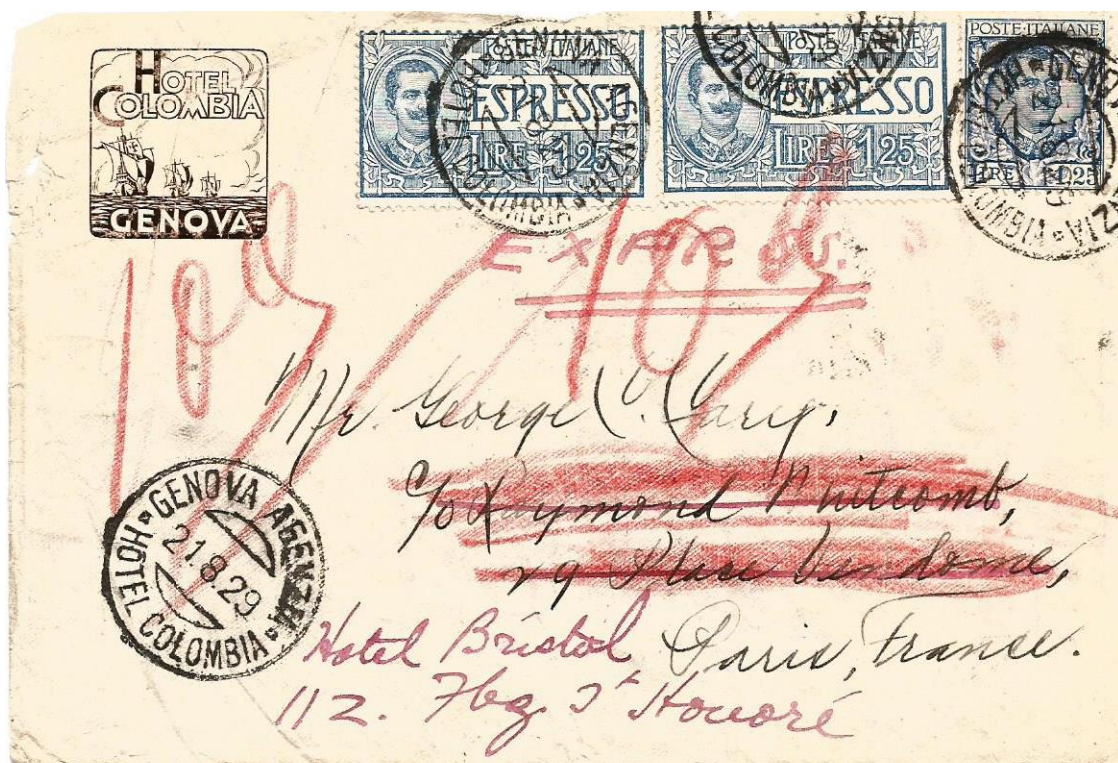 HOTEL
COLOMBIA
GENOVA
POSTE ITALIANE
ESPRESSO
LIRE 1,25
POSTE ITALIANE
ESPRESSO
LIRE 1,25
POSTE·ITALIANE
LIRE 1,25
EXPRESS.
109
Mr. George C. Cary,
c/o Raymond Whitcomb,
29 Place Vendome,
Paris, France.
Hotel Bristol
112. Fbg St Honoré
GENOVA AGENZIA
HOTEL COLOMBIA
21.8.29